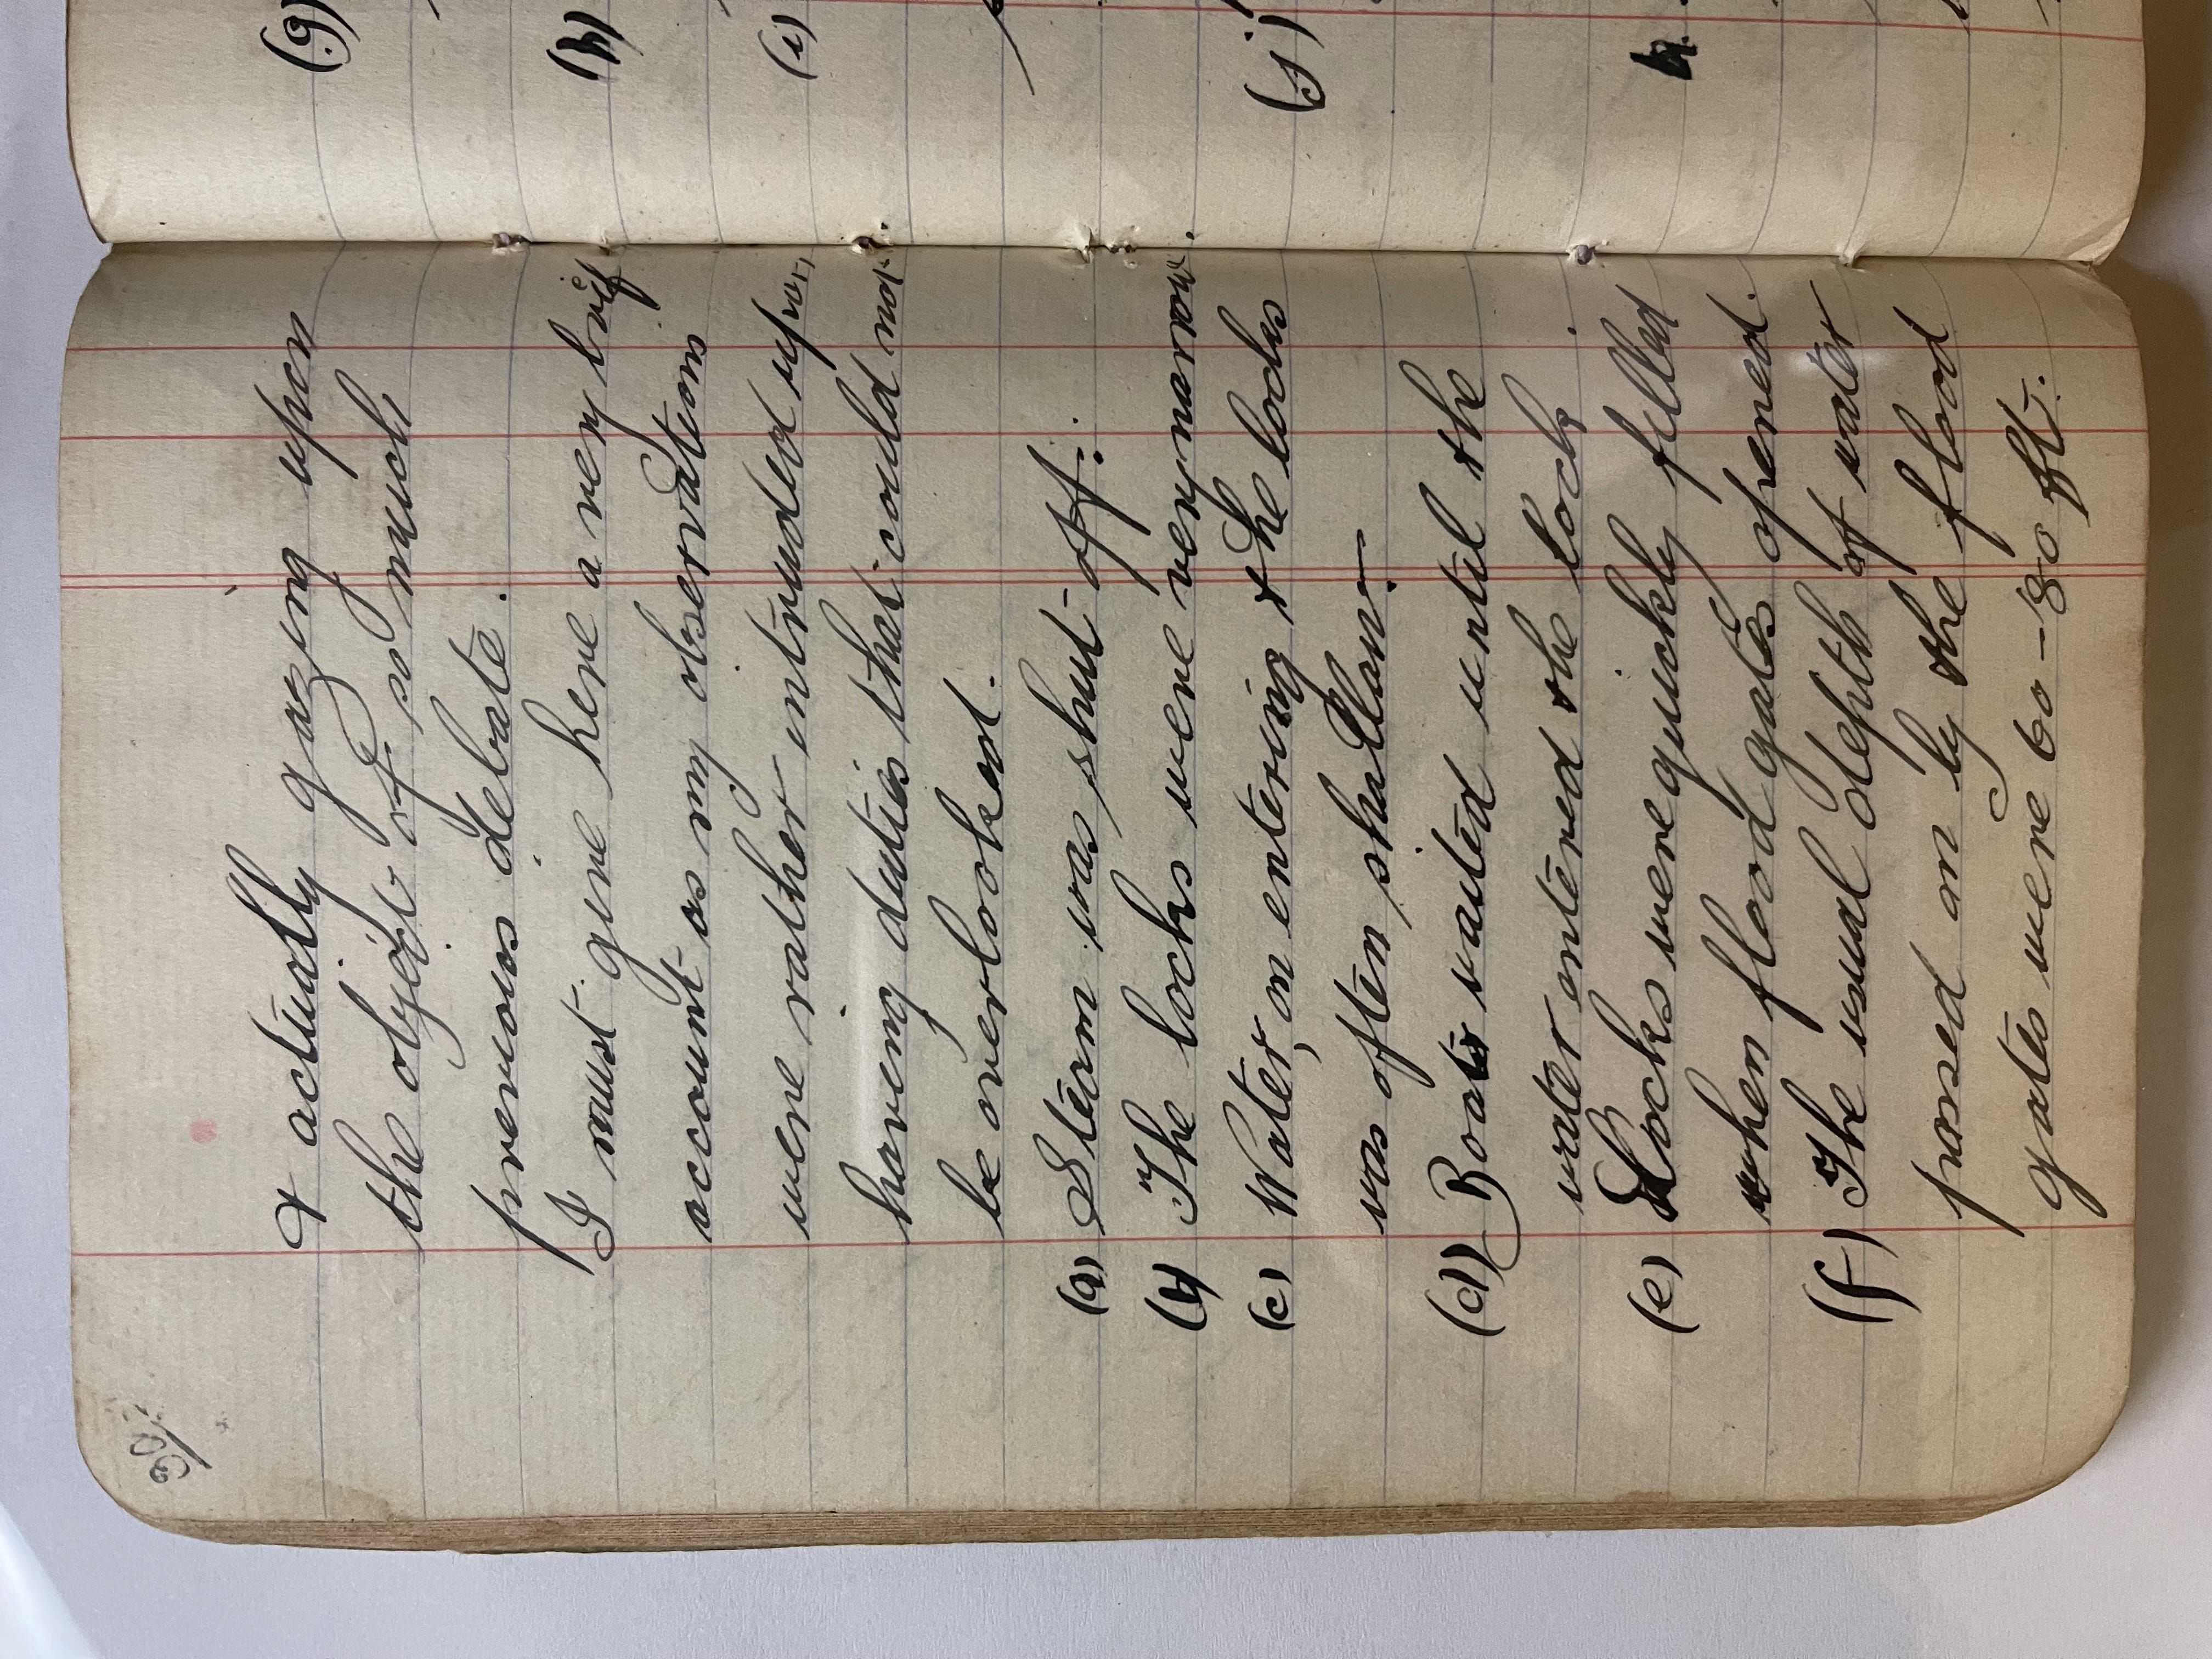 30
& actually gazing upon
the object of so much
previous debate.
I must give here a very brief
account as my observations
were rather intruded upon,
having duties that could not
be overlooked.
(a) Steam was shut off.
(b) The locks were very narrow.
(c) Water, on entering the locks
was often shallow.
(d) Boats waited until the
water entered the lock.
(e) Locks were quickly filled
when flood gates opened.
(f) The usual depth of water
passed on by the flood
gates were 60-80 ft.
(g)
(h)
(i)
(j)